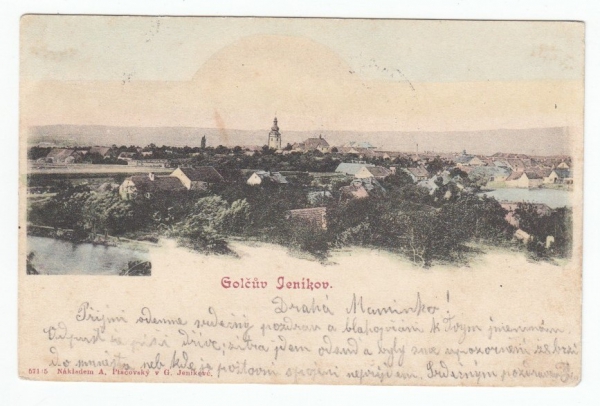 Golčův Jeníkov.
Drahá Maminko!
Přijmi odemne srdečný pozdrav a blahopřání k Tvým jmeninám.
Odpusť že píši dříve, zitra jdem odsud a byly sme upozorněni že
do mnoista neb kde je poštovní spojení nepřijdem. Srdečným pozdravem
571/5 Nákladem A. Ptačovský v G. Jeníkově.